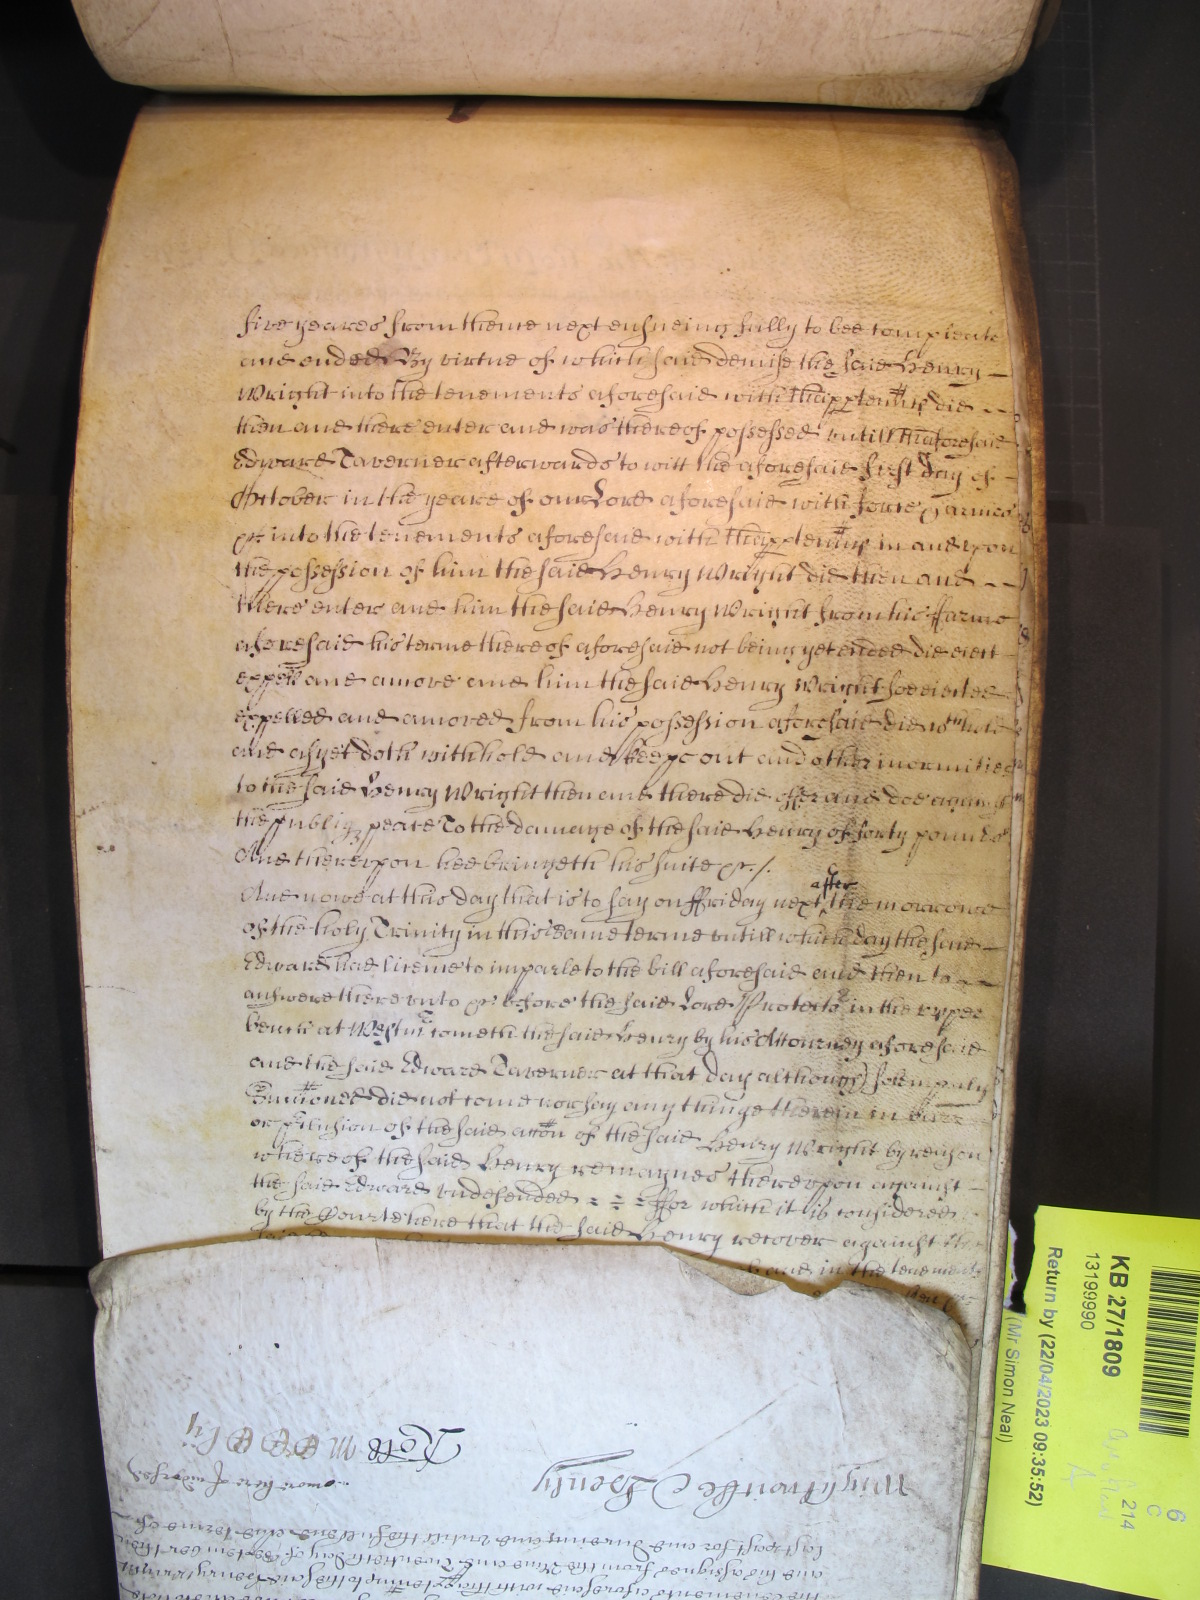 five yeares from thence next ensueing fully to bee compleate
and ended By virtue of which said demise the said Henry
Wright into the tenements aforesaid with thapptenncs did
then and there enter and was thereof possessed untill thaforesaid
Edward Taverner afterwards to witt the aforesaid first day of
October in the yeare of our Lord aforesaid with force & armes
&c into the tenements aforesaid with thapptenncs in and upon
the possession of him the said Henry Wright did then and
there enter and him the said Henry Wright from his ffarme
aforesaid his terme thereof aforesaid not being yet ended did eiect
expell and amove and him the said Henry Wright soe eiected
expelled and amoved from his possession aforesaid did wthhold
and as yet doth withhold and keepe out and other inormities
to the said Henry Wright then and there did offer and doe against
the publiq peace To the damage of the said Henry of forty pounds
And thereupon hee bringeth his suite &c /.
And nowe at this day that is to say on ffriday next after the morrowe
of the holy Trinity in this same terme untill which day the said
Edward had licence to imparle to the bill aforesaid and then to
answere thereunto &c before the said Lord Protector in the upper
bench at Westm cometh the said Henry by his Attourney aforesaid
and the said Edward Taverner at that day although solempnly
Sumoned did not come nor say any thinge therein in barr
or p'clusion of the said accon of the said Henry Wright by reason
whereof the said Henry remaynes thereupon against
the said Edward undefended ffor which it is considered
by the Courte here that the said Henry recover against the
and in the tenements
Rotlo
Henly
more here Indorsed
last past for and dureing and untill the full end and terme of
and his assignes from the Nine and Twentieth day of September then
the tenements aforesaid with thapptenncs to the said Henry Wright
KB 27/1809
13199990
Return by (22/04/2023 09:35:52)
(Mr Simon Neal)
6
C
214